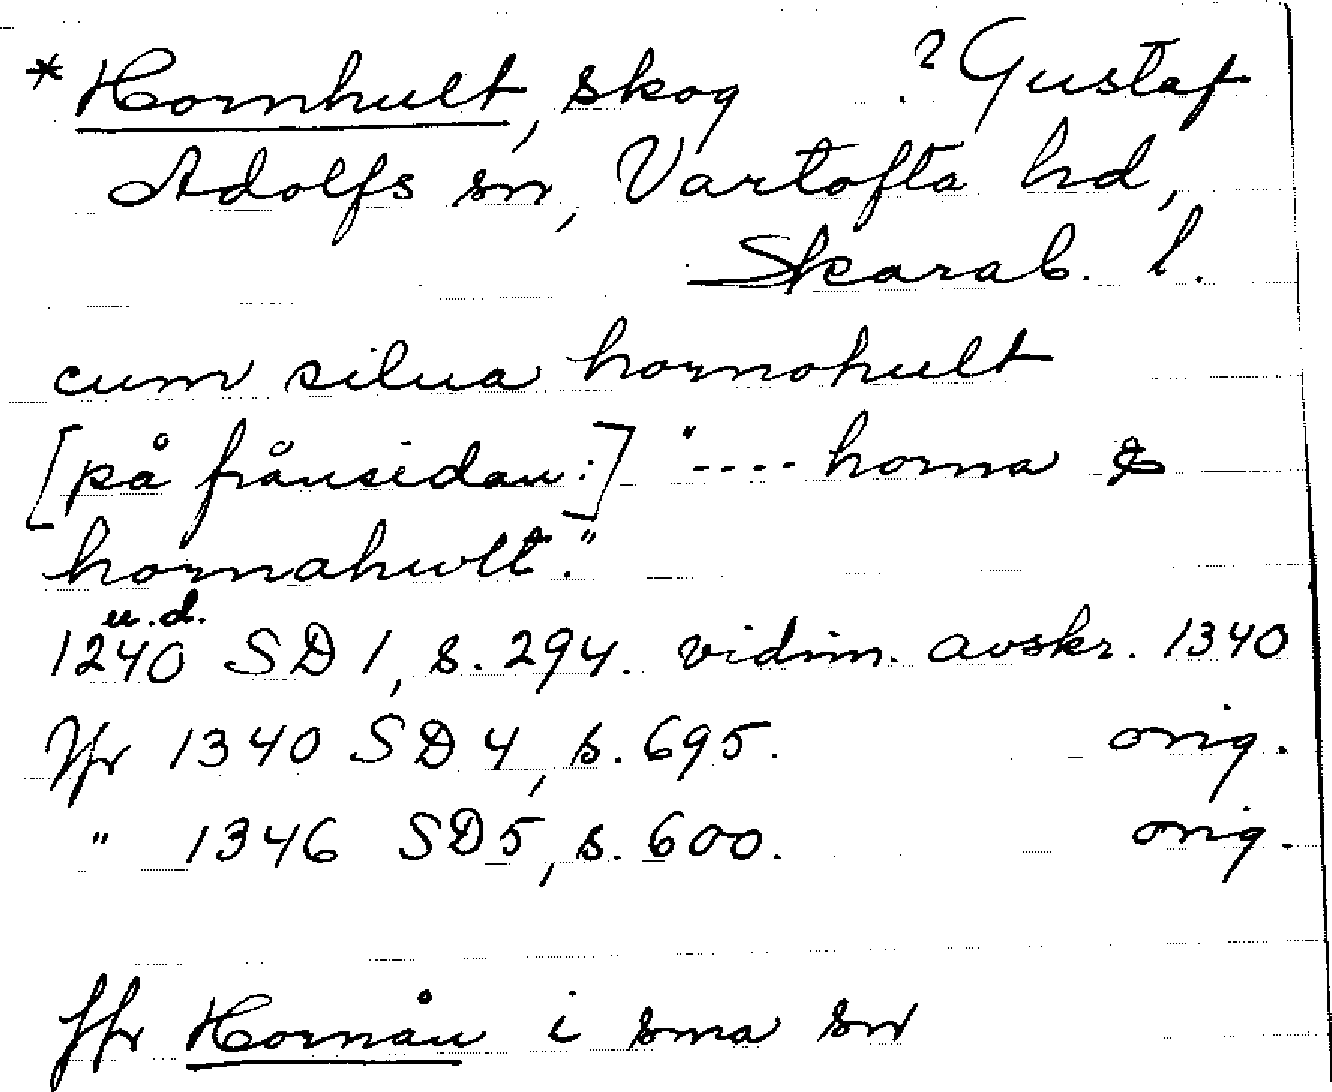 * Hornhult, skog ? Gustaf
Adolfs sn, Vartofta hd,
Skarab. l.
cum silua hornohult
[på frånsidan:] "---- horna &
hornahwlt."
u.d.
1240 SD 1, s. 294. vidim. avskr. 1340
Jfr 1340 SD 4, s. 695. orig.
" 1346 SD 5, s. 600. orig.
Jfr Hornån i sma sn